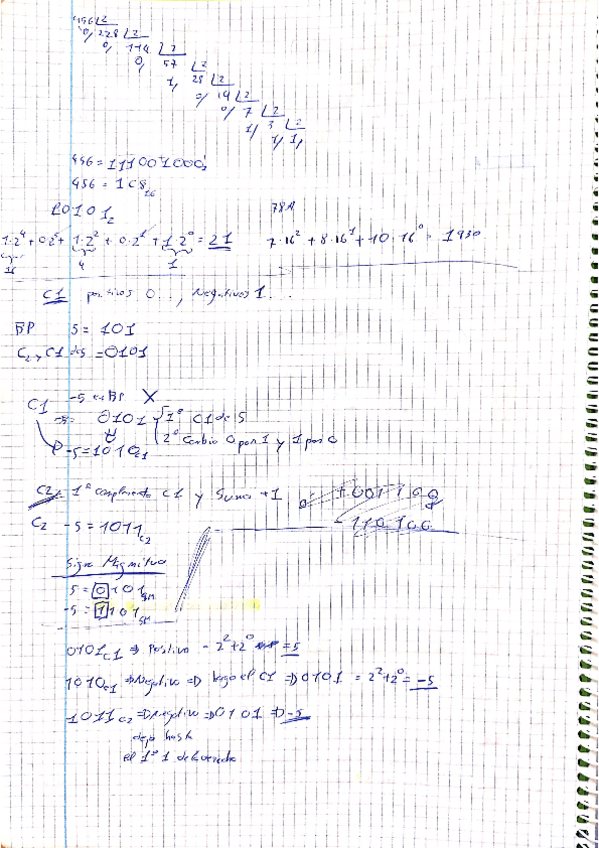 456 2
0/ 228 2
0/ 114 2
0/ 57 2
1, 28 2
0/ 14 2
0/ 7 2
1/ 3 2
1/ 1,
456 = 111001000₂
456 = 1C8₁₆
10101₂
78A
1·2⁴ + 0·2³ + 1·2² + 0·2¹ + 1·2⁰ = 21 7·16² + 8·16¹ + 10·16⁰ = 1930
16 4 1
C1 positivos 0..., Negativos 1...
BP 5 = 101
C2 y C1 de 5 = 0101
-5 en BP X
C1 0101 1º C1 de 5
2º Cambio 0 por 1 y 1 por 0
-5 = 1010 C1
C2 1º complemento C1 y Sumo +1
C2 -5 = 1011 C2
Signo Magnitud
5 = 0101 SM
-5 = 1101 SM
0101 C1 ⇒ Positivo = 2² + 2⁰ = 5
1010 C1 ⇒ Negativo ⇒ hago el C1 ⇒ 0101 = 2² + 2⁰ = -5
1011 C2 ⇒ Negativo ⇒ 0101 ⇒ -5
dejo hasta
el 1º 1 derecha